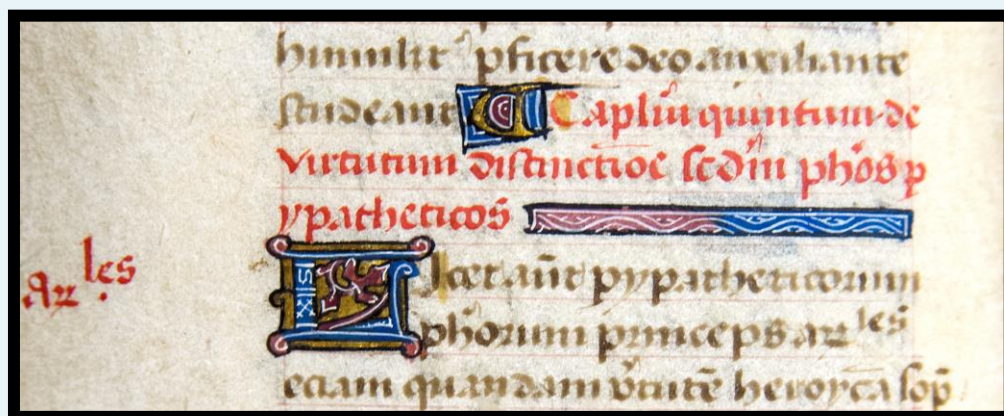 humilit᷑ ꝓficere deo auxiliante
studeant Caplm̄ quintum de
virtutum distinctioē scdm̄ phōs p
ypatheticos
arles
Licet aūt pypatheticorum
phōrum princeps arles
eciam quandam v̓tutē heroycā sop̄